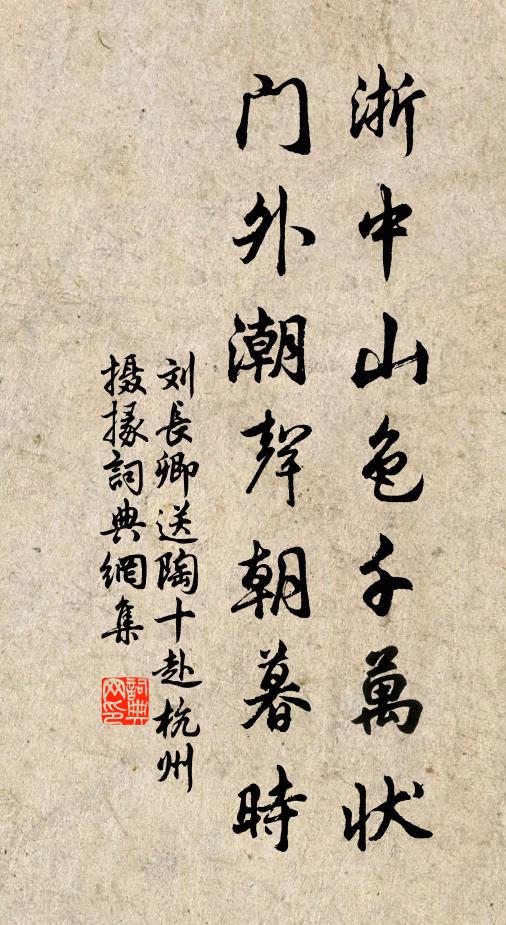 浙中山色千萬状
门外潮聲朝暮時
刘長卿送陶十赴杭州
摄掾詞典網集
詞典网印